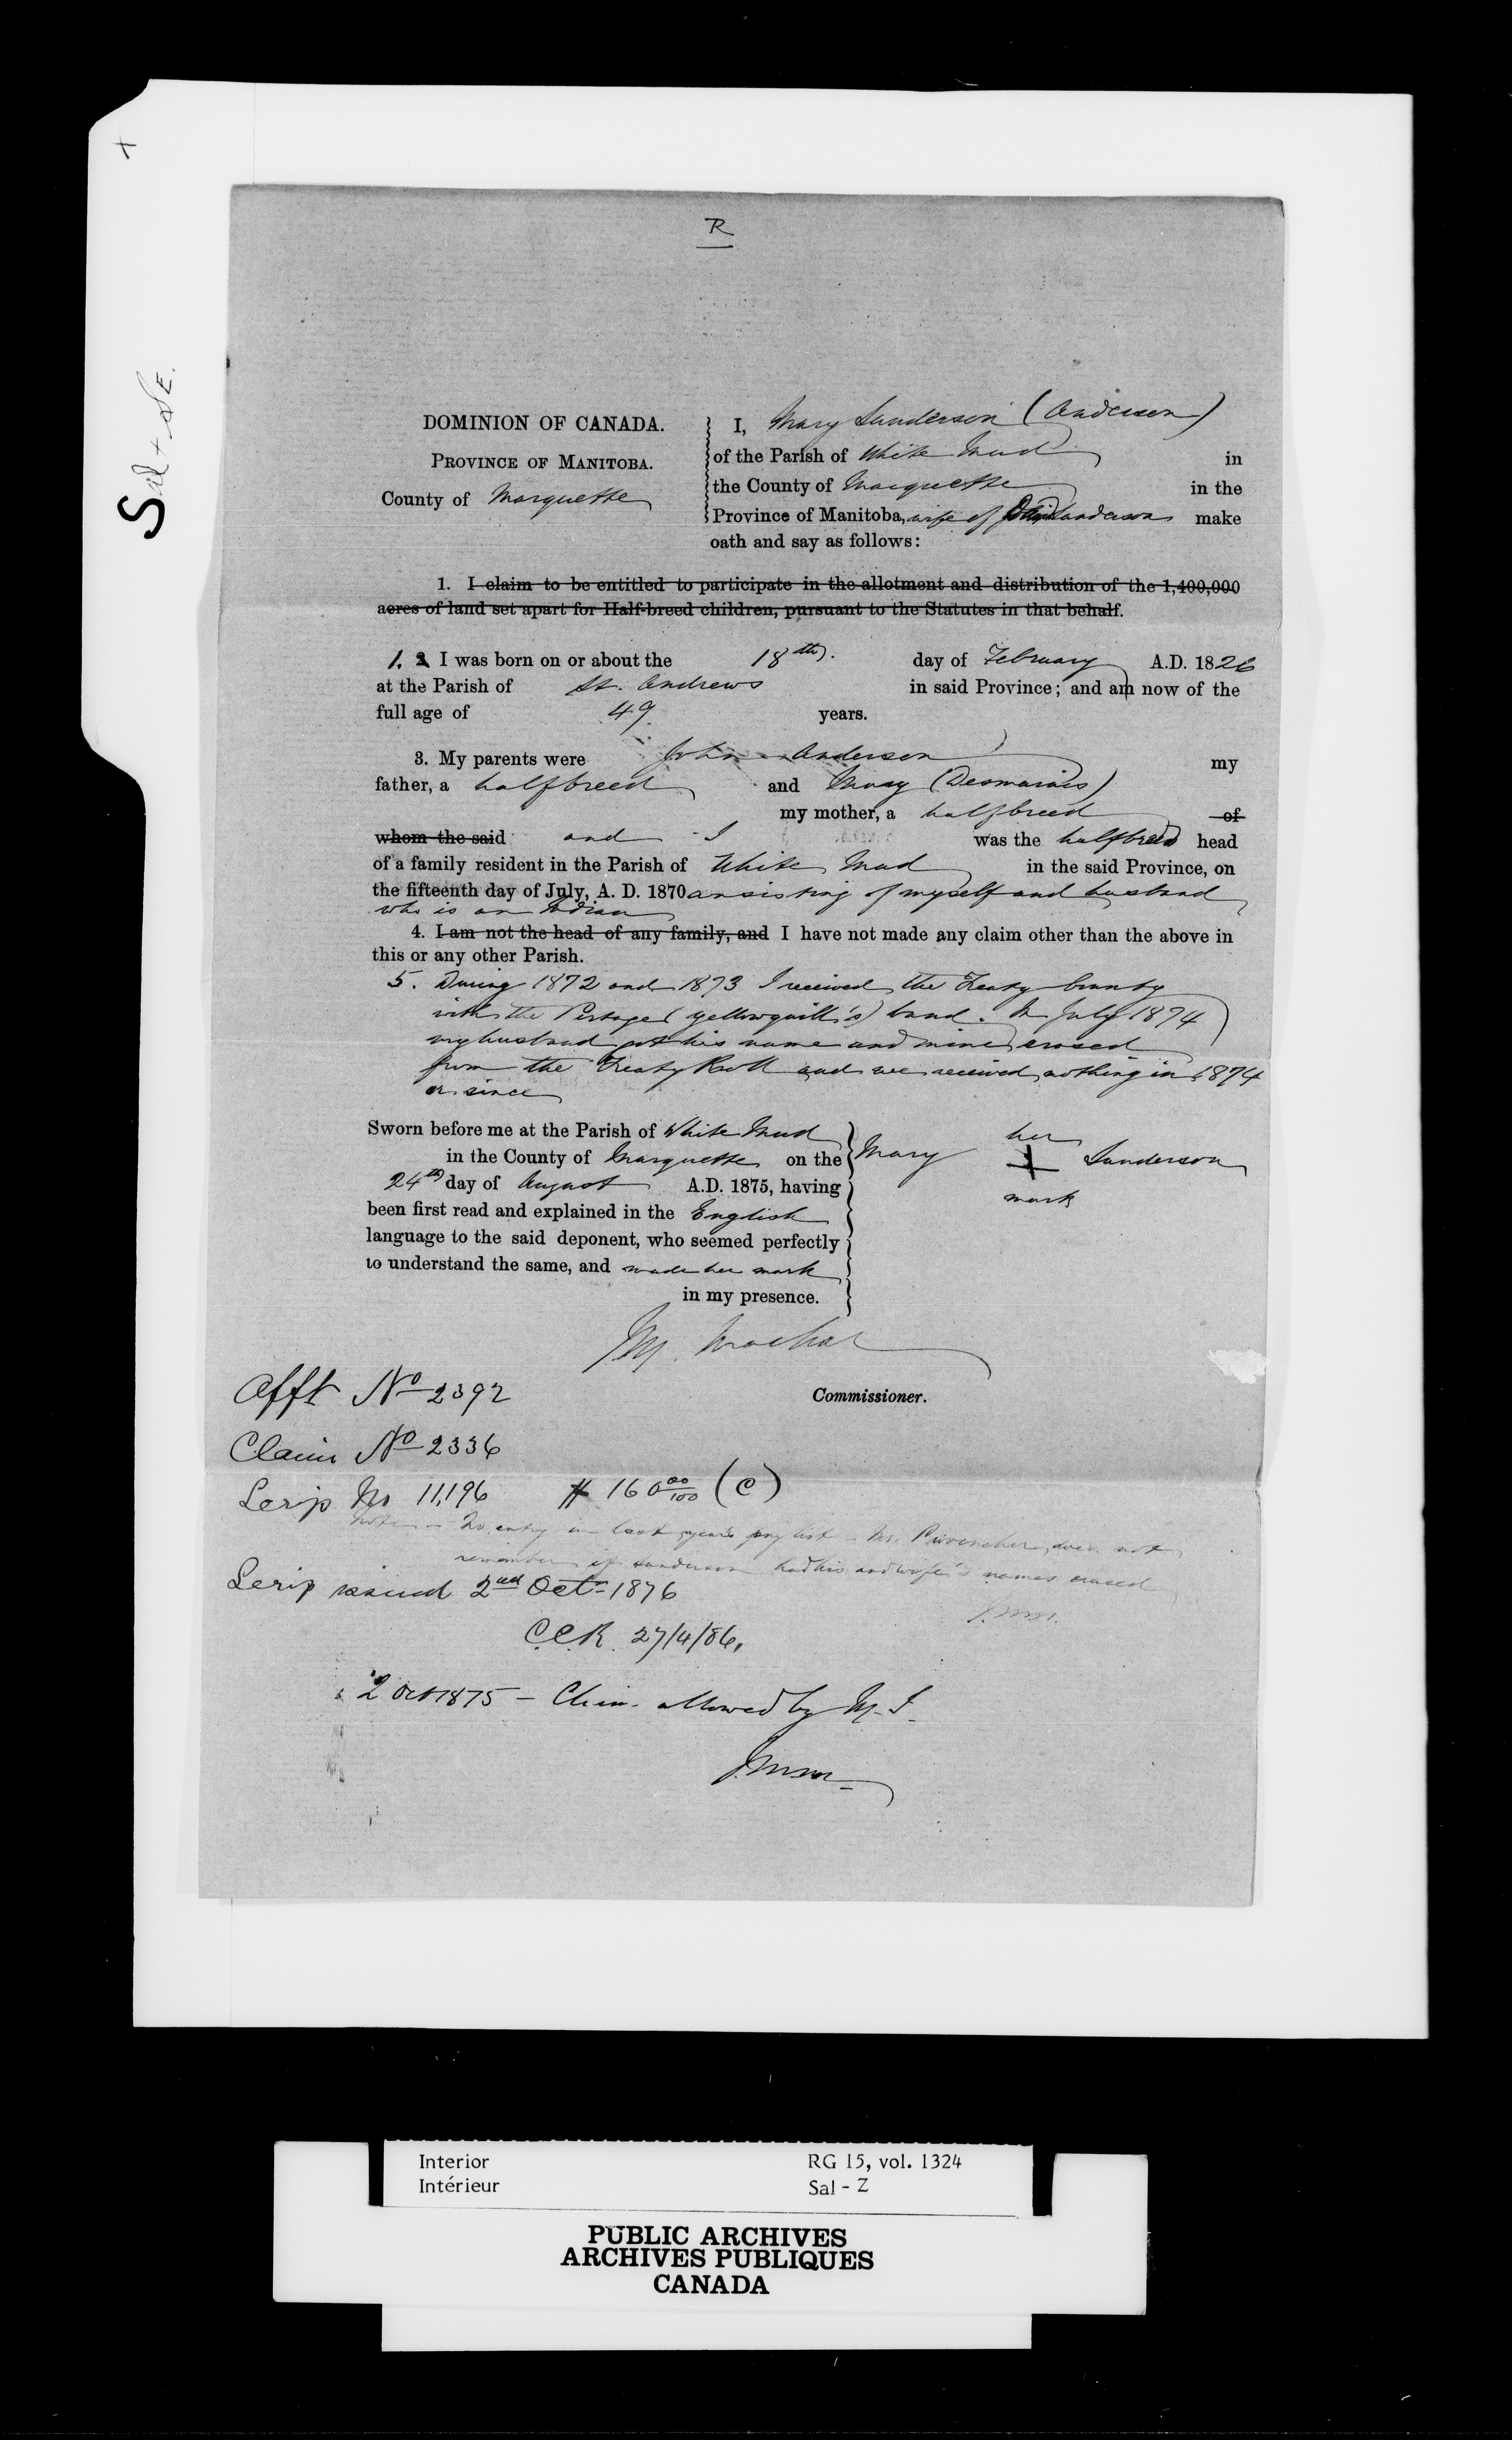 X
Sal + SE.
R
DOMINION OF CANADA.
PROVINCE OF MANITOBA.
County of Marquette
I, Mary Sanderson (Anderson)
of the Parish of White Mud in
the County of Marquette in the
Province of Manitoba, wife of Sanderson make
oath and say as follows:
1. I claim to be entitled to participate in the allotment and distribution of the 1,400,000
acres of land set apart for Half-breed children, pursuant to the Statutes in that behalf.
1. 2 I was born on or about the 18th day of February A.D. 1826
at the Parish of St. Andrews in said Province; and am now of the
full age of 49 years.
3. My parents were John Anderson my
father, a halfbreed and Mary (Desmarais)
my mother, a halfbreed of
whom the said and I was the halfbreed head
of a family resident in the Parish of White Mud in the said Province, on
the fifteenth day of July, A. D. 1870 consisting of myself and husband
who is an Indian
4. I am not the head of any family, and I have not made any claim other than the above in
this or any other Parish.
5. During 1872 and 1873 I received the Treaty bounty
with the Portage (Yellowquill's) band. In July 1874
my husband got his name and mine erased
from the Treaty Roll and we received nothing in 1874
or since
Sworn before me at the Parish of White Mud
in the County of Marquette on the
24th day of August A.D. 1875, having
been first read and explained in the English
language to the said deponent, who seemed perfectly
to understand the same, and made her mark
in my presence.
Mary her X mark Sanderson
J.M. Machar
Commissioner.
Afft No 2392
Claim No 2336
Scrip No 11,196 $160 00/100 (C)
Note - No entry in last year's pay list - Mr. Provencher does not
remember if Sanderson had his and wife's names erased
J.M.M.
Scrip issued 2nd Oct- 1876
C.C.R. 27/4/86.
2 Oct 1875 - Claim allowed by M. I.
J.M.M.
Interior
Intérieur
RG 15, vol. 1324
Sal - Z
PUBLIC ARCHIVES
ARCHIVES PUBLIQUES
CANADA